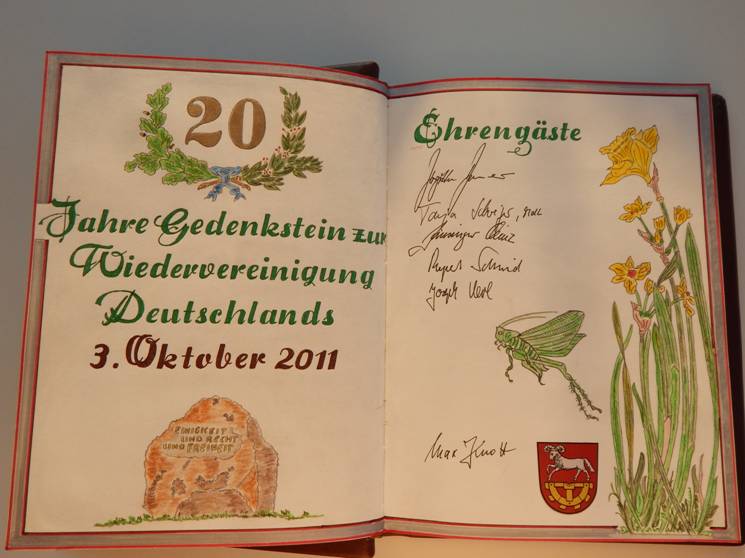 20
Jahre Gedenkstein zur
Wiedervereinigung
Deutschlands
3. Oktober 2011
EINIGKEIT
UND RECHT
UND FREIHEIT
Ehrengäste
Tanja
Rupert Schmid
Joseph
Max Knott